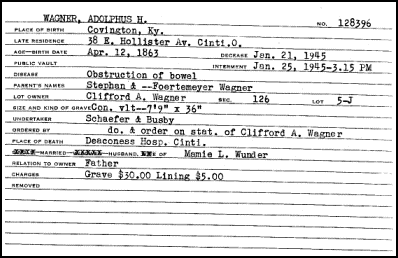 WAGNER, ADOLPHUS H. NO. 128396
PLACE OF BIRTH Covington, Ky.
LATE RESIDENCE 38 E. Hollister Av. Cinti.O.
AGE—BIRTH DATE Apr. 12, 1863 DECEASE Jan. 21, 1945
PUBLIC VAULT INTERMENT Jan. 25, 1945-3.15 PM
DISEASE Obstruction of bowel
PARENT'S NAMES Stephan & --Foertemeyer Wagner
LOT OWNER Clifford A. Wagner SEC. 126 LOT 5-J
SIZE AND KIND OF GRAVE Con. vlt--7'9" x 36"
UNDERTAKER Schaefer & Busby
ORDERED BY do. & order on stat. of Clifford A. Wagner
PLACE OF DEATH Deaconess Hosp. Cinti.
MARRIED HUSBAND, OF Mamie L. Wunder
RELATION TO OWNER Father
CHARGES Grave $30.00 Lining $5.00
REMOVED